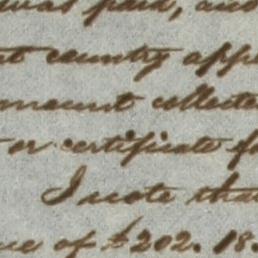 was paid, and
country
amount collected
or certificate
I note that
of £202. 18